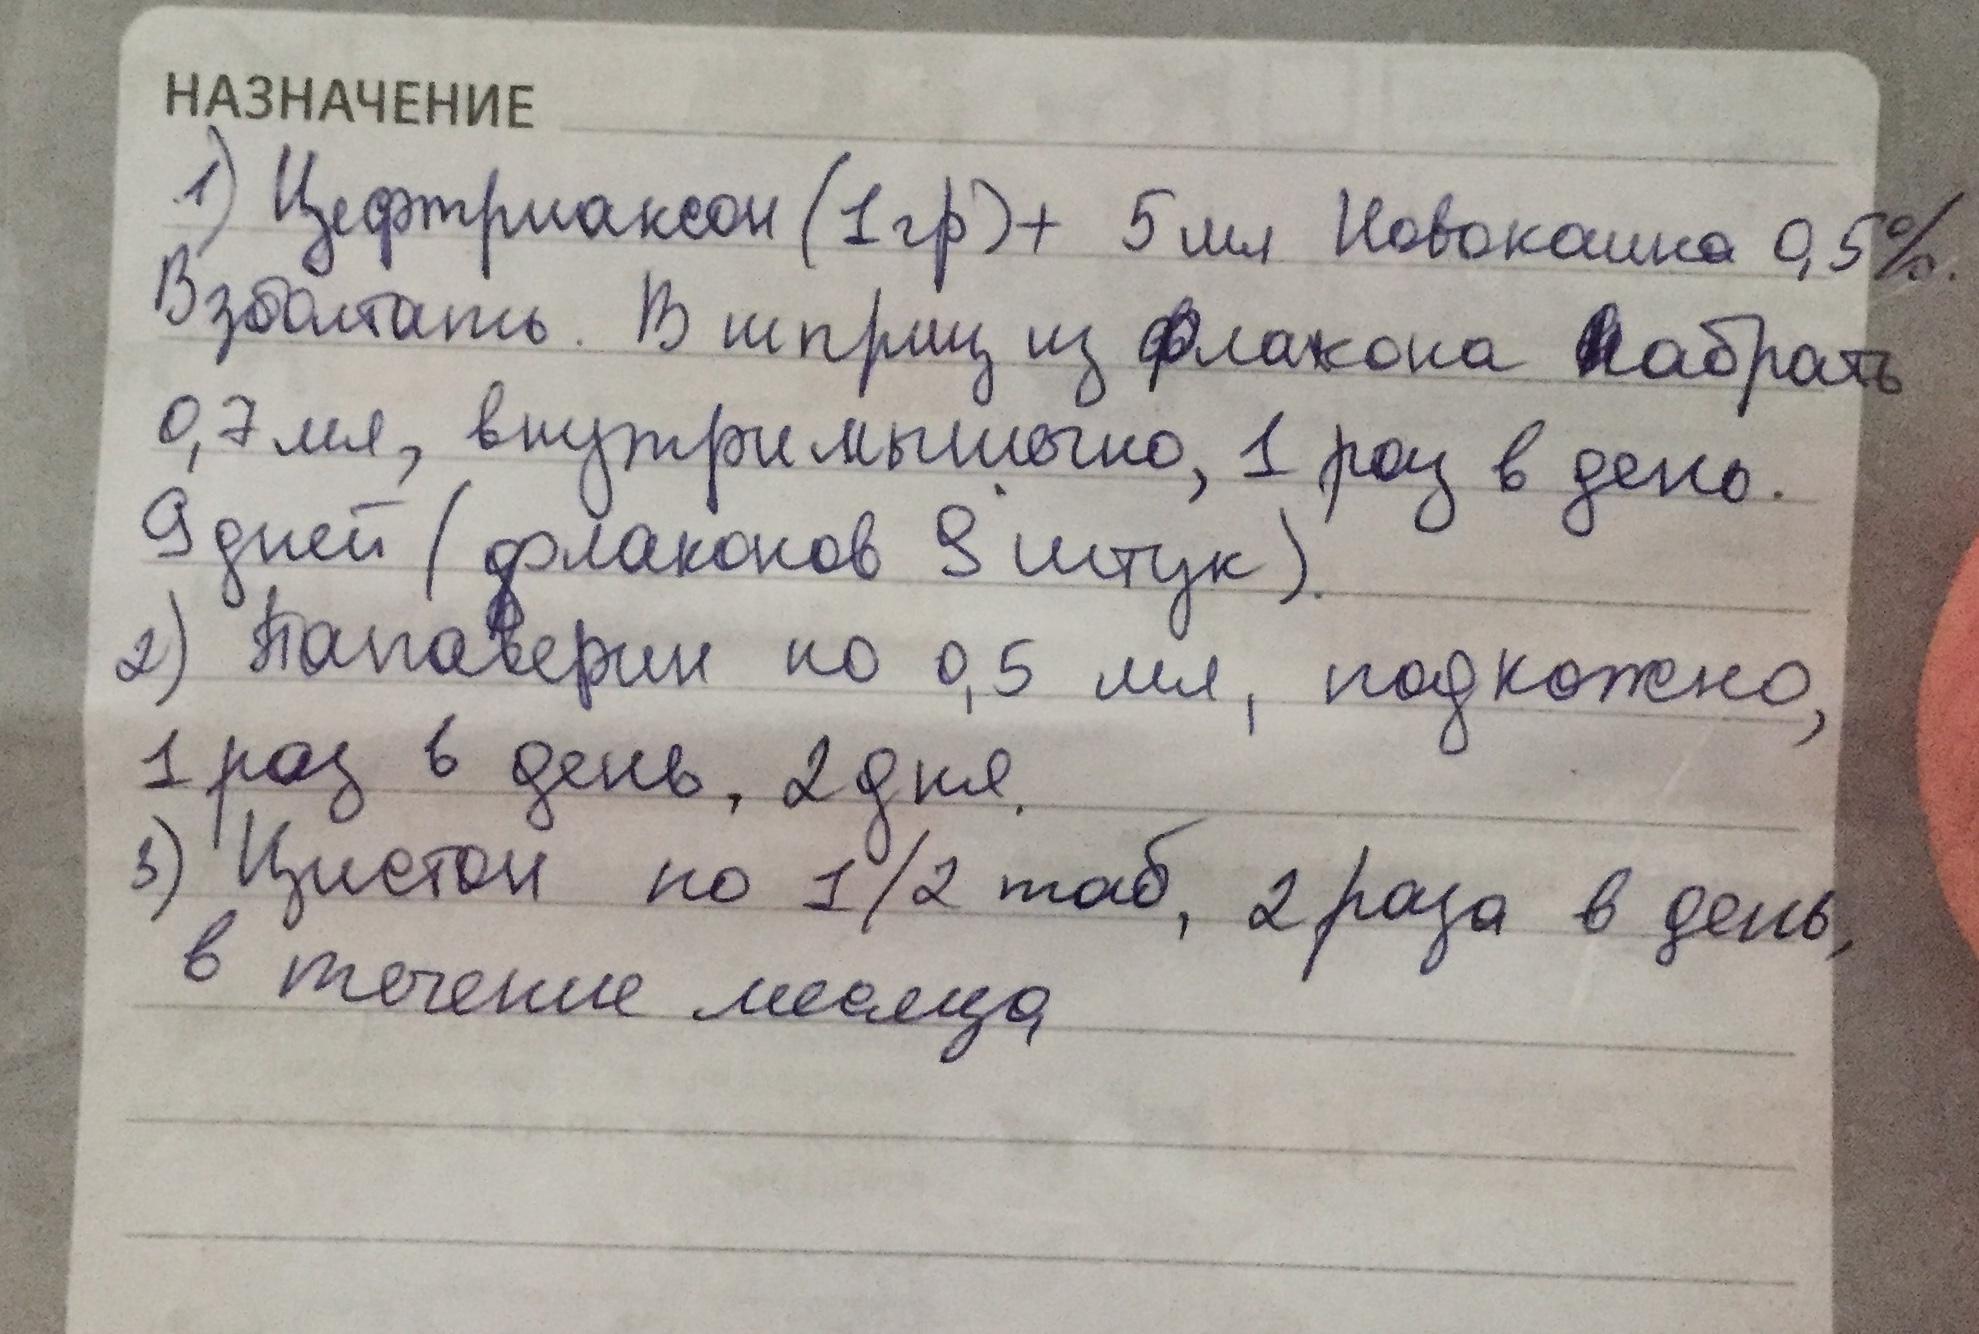 НАЗНАЧЕНИЕ
1) Цефтриаксон (1 гр) + 5 мл Новокаина 0,5%.
Взболтать. В шприц из флакона набрать
0,7 мл, внутримышечно, 1 раз в день.
9 дней (флаконов 9 штук).
2) Папаверин по 0,5 мл, подкожно,
1 раз в день, 2 дня.
3) Цистон по 1/2 таб, 2 раза в день,
в течение месяца